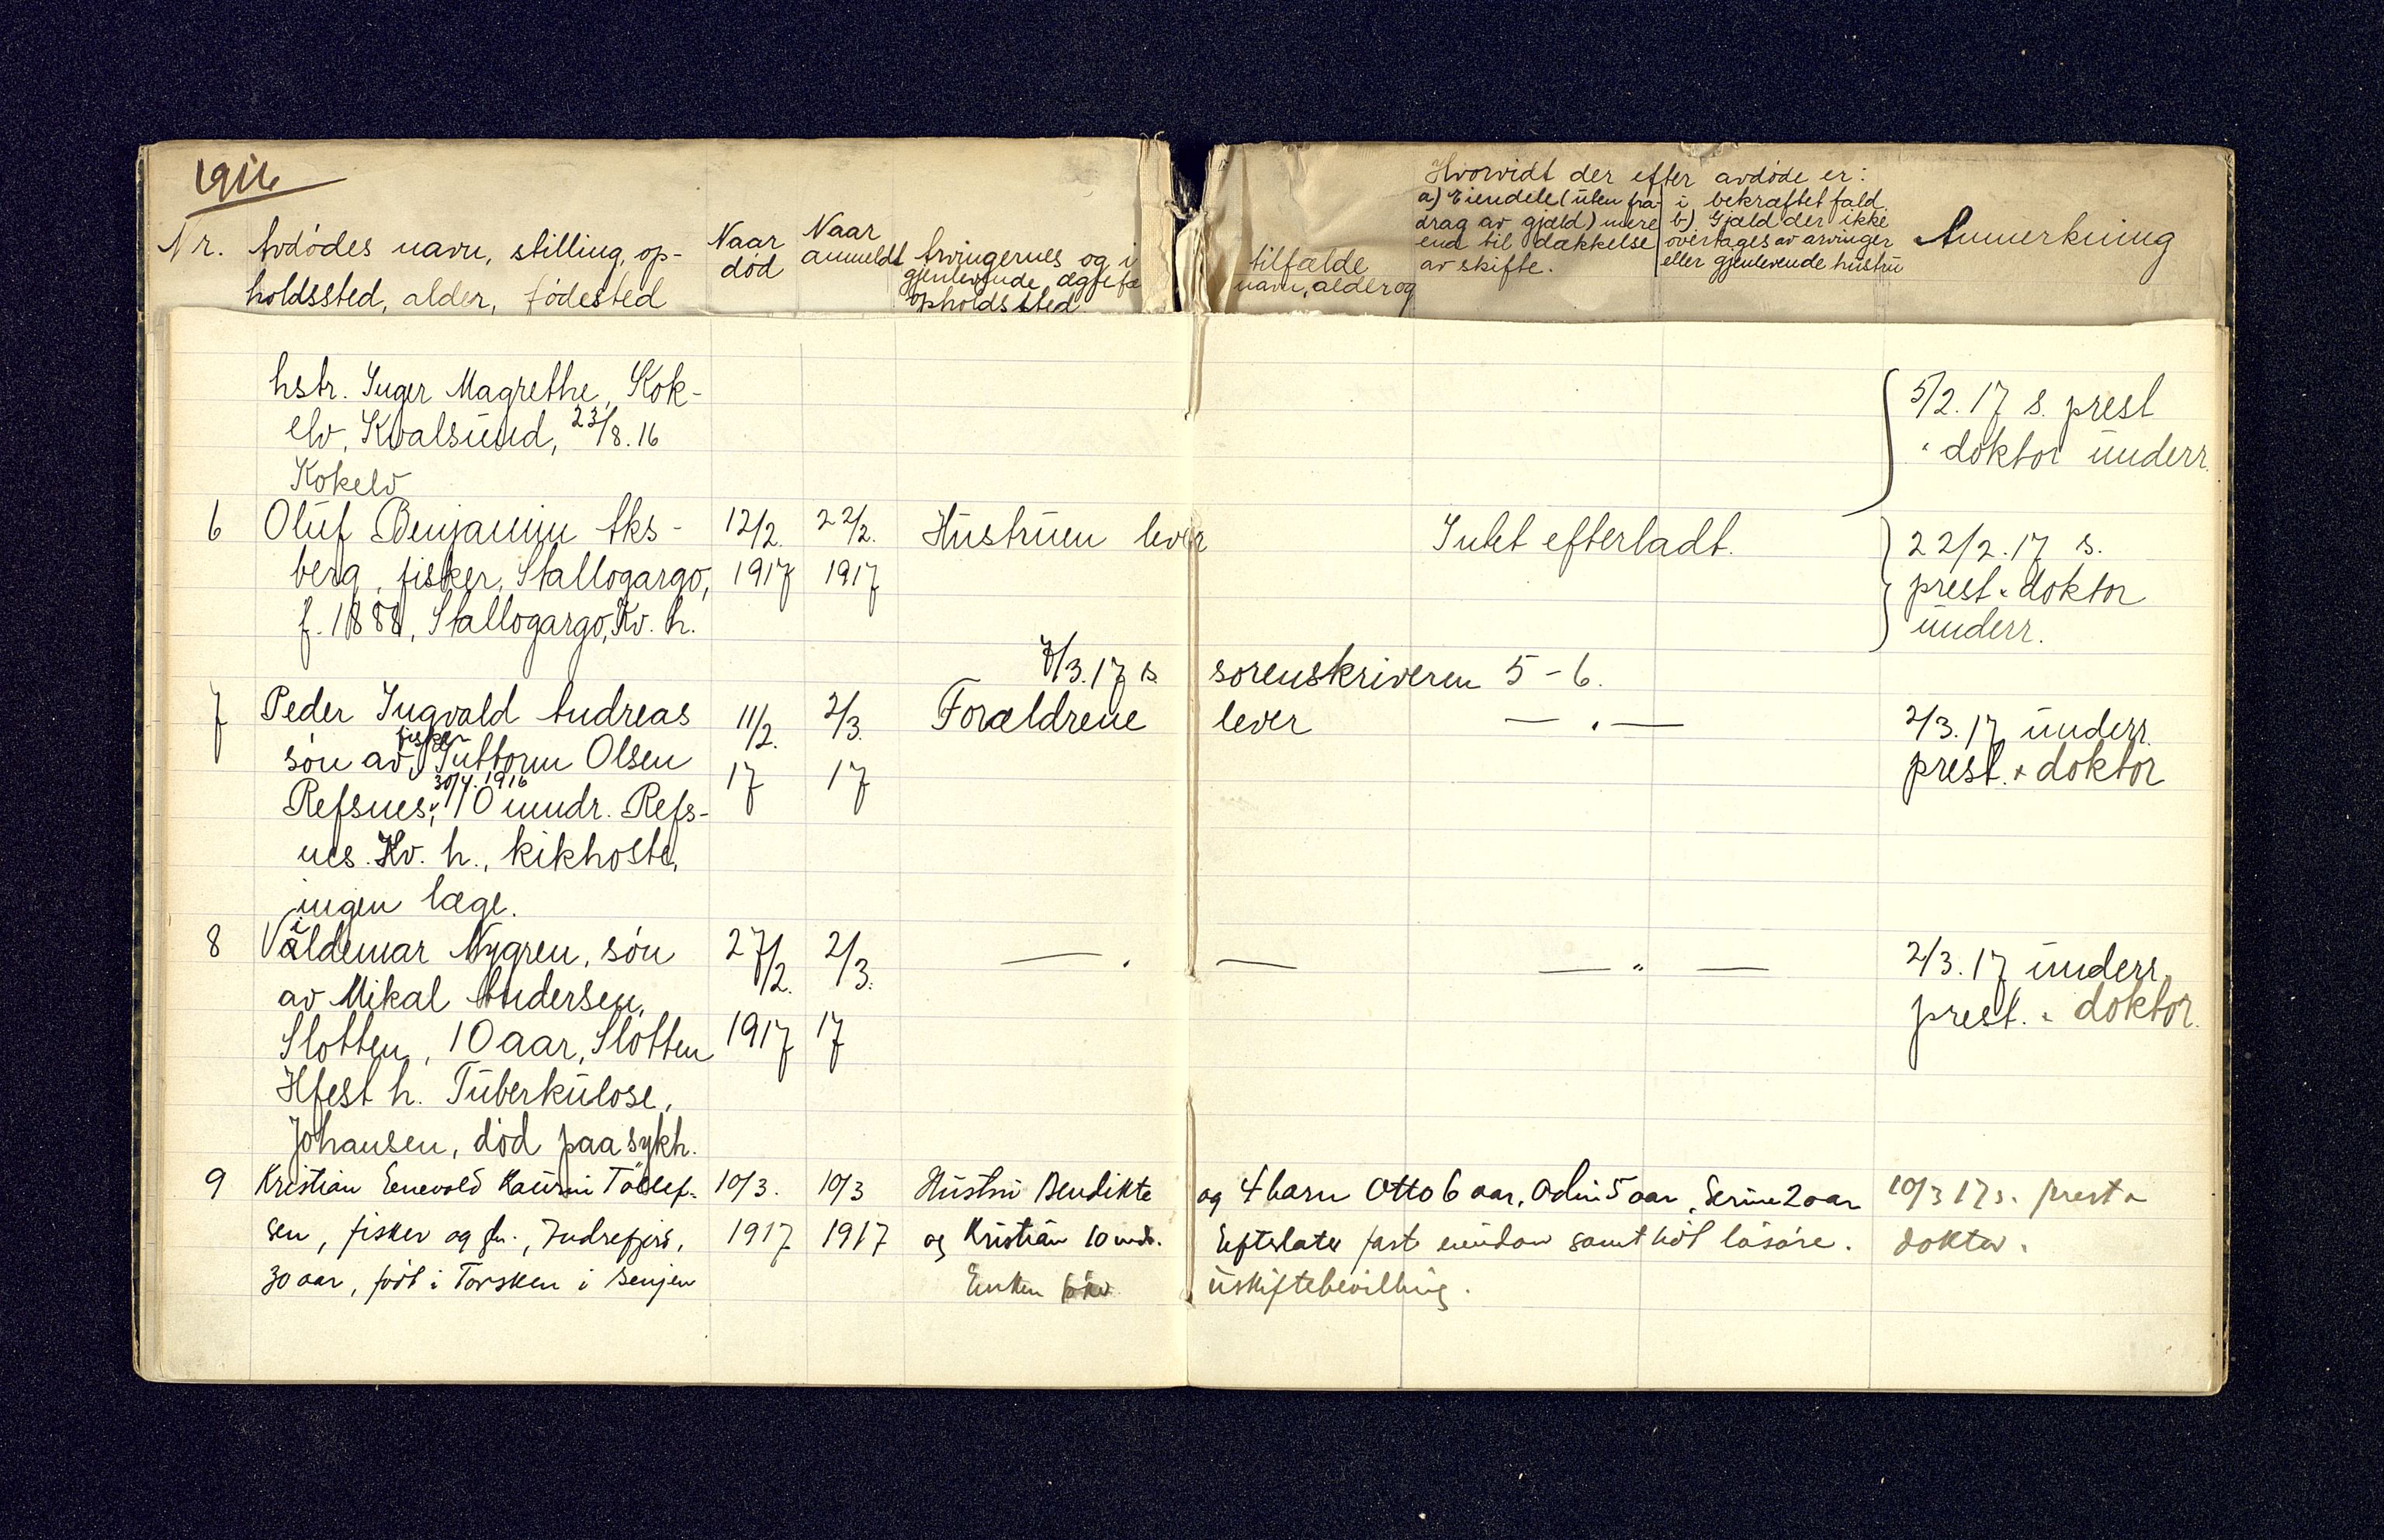 1916
Nr.
Avdödes navn, stilling, op-
holdssted, alder, födested
Naar
död
Naar
anmeldt
Arvingernes og i
gjenlevende ægtefæ
opholdssted.
tilfælde
navn, alder og
Hvorvidt der efter avdöde er:
a) Eiendele (uten fra-
drag av gjæld) mere
end til dækkelse
av skifte.
i bekræftet fald
b) Gjæld der ikke
overtages av arvinger
eller gjenlevende hustru
Anmerkning
hstr. Inger Magrethe, Kok-
elv, Kvalsund, 23/8.16
Kokelv
5/2.17 s. prest
" doktor underr.
6
Oluf Benjamin Aks-
berg, fisker, Stallogargo,
f. 1888, Stallogargo, Kv. h.
12/2.
1917
22/2.
1917
Hustruen lever
Intet efterladt.
22/2.17 s.
prest " doktor
underr.
7/3.17 s. sorenskriveren 5-6.
7
Peder Ingvald Andreas
fisker
sön av Guttorm Olsen
30/4.1916
Refsnes, 10 mndr. Refs-
nes. Kv. h., kikhoste,
ingen læge.
11/2.
17
2/3.
17
Forældrene lever
— " —
2/3.17 underr.
prest. + doktor
8
Valdemar Nygren, sön
av Mikal Andersen,
Slotten, 10 aar, Slotten
Hfest h. Tuberkulose,
Johansen, död paa sykh.
27/2.
1917
2/3.
17
— " —
— " —
2/3.17 underr.
prest. " doktor.
9
Kristian Enevold Tollef-
sen, fisker og gbr., Indrefjord,
30 aar, födt i Torsken i Senjen
10/3.
1917
10/3
1917
Hustru Bendikte og 4 barn Otto 6 aar, Odin 5 aar, Serine 2 aar
og Kristian 10 md. Efterlater fast eiendom samt litt lösöre.
Enken uskiftebevilling.
10/3 17 s. prest "
doktor.